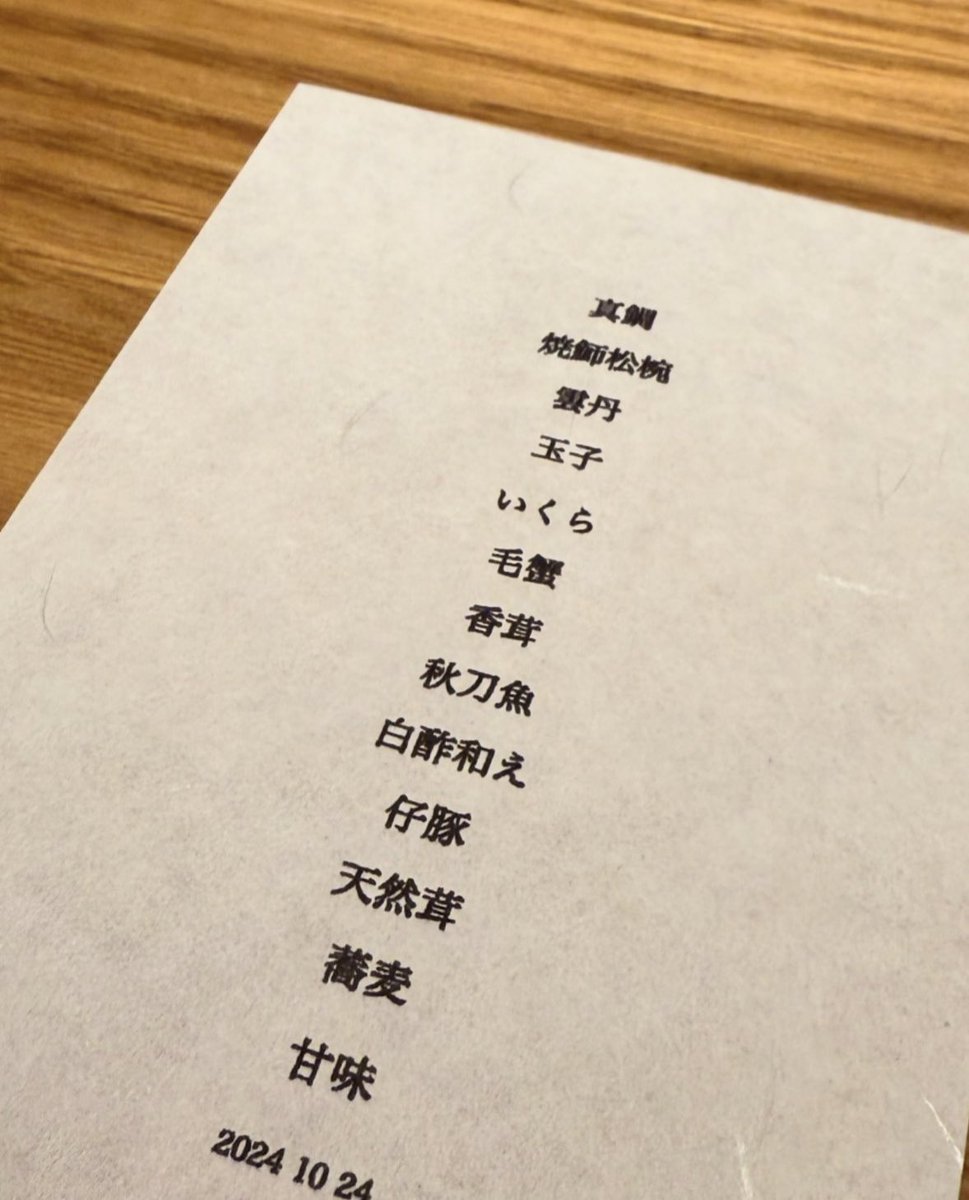 真鯛
焼鰤松椀
雲丹
玉子
いくら
毛蟹
香茸
秋刀魚
白酢和え
仔豚
天然茸
蕎麦
甘味
2024 10 24